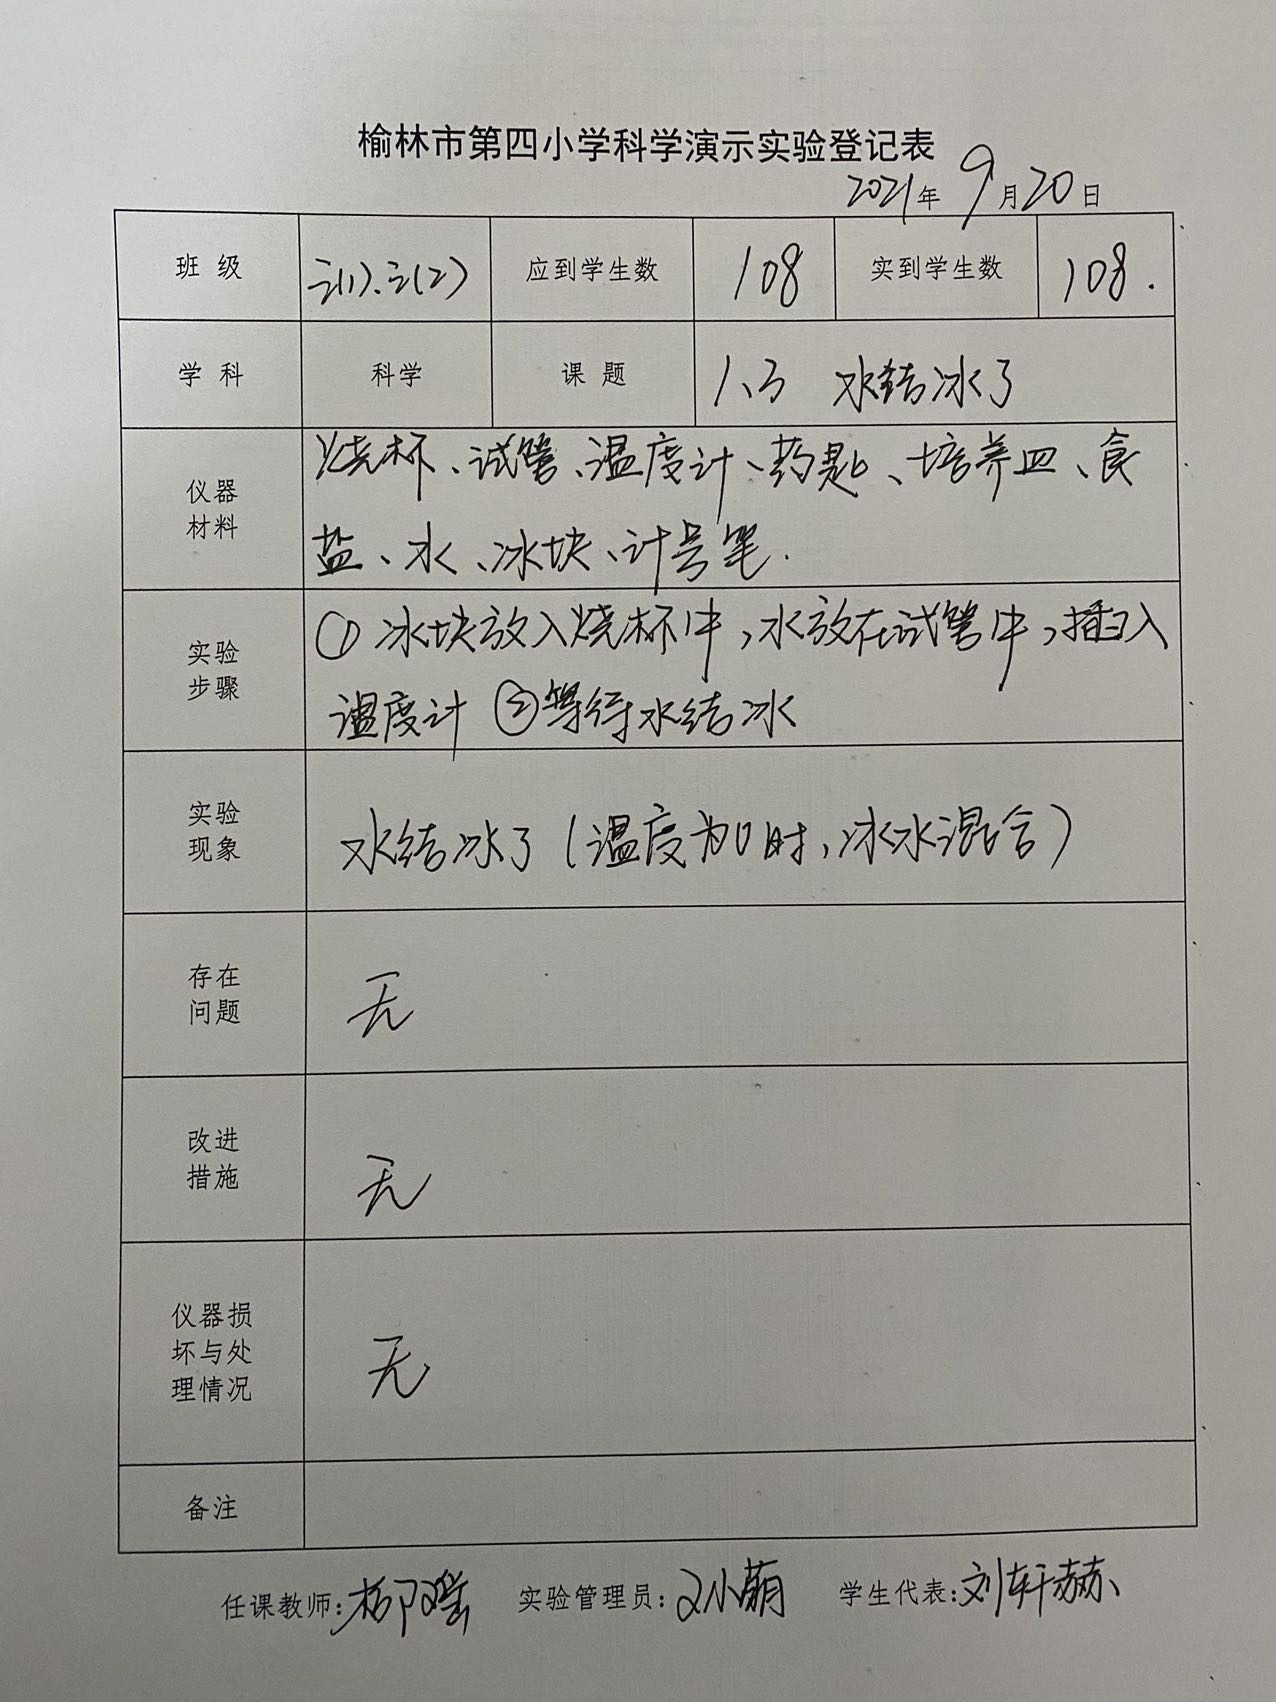 榆林市第四小学科学演示实验登记表
2021年9月20日
班级 三(1)、三(2) 应到学生数 108 实到学生数 108.
学科 科学 课题 1、3 水结冰了
仪器
材料
烧杯、试管、温度计、药匙、培养皿、食
盐、水、冰块、计号笔.
实验
步骤
①冰块放入烧杯中,水放在试管中,插入
温度计 ②等待水结冰
实验
现象
水结冰了(温度为0时,冰水混合)
存在
问题
无
改进
措施
无
仪器损
坏与处
理情况
无
备注
任课教师: 实验管理员: 小萌 学生代表:刘轩赫